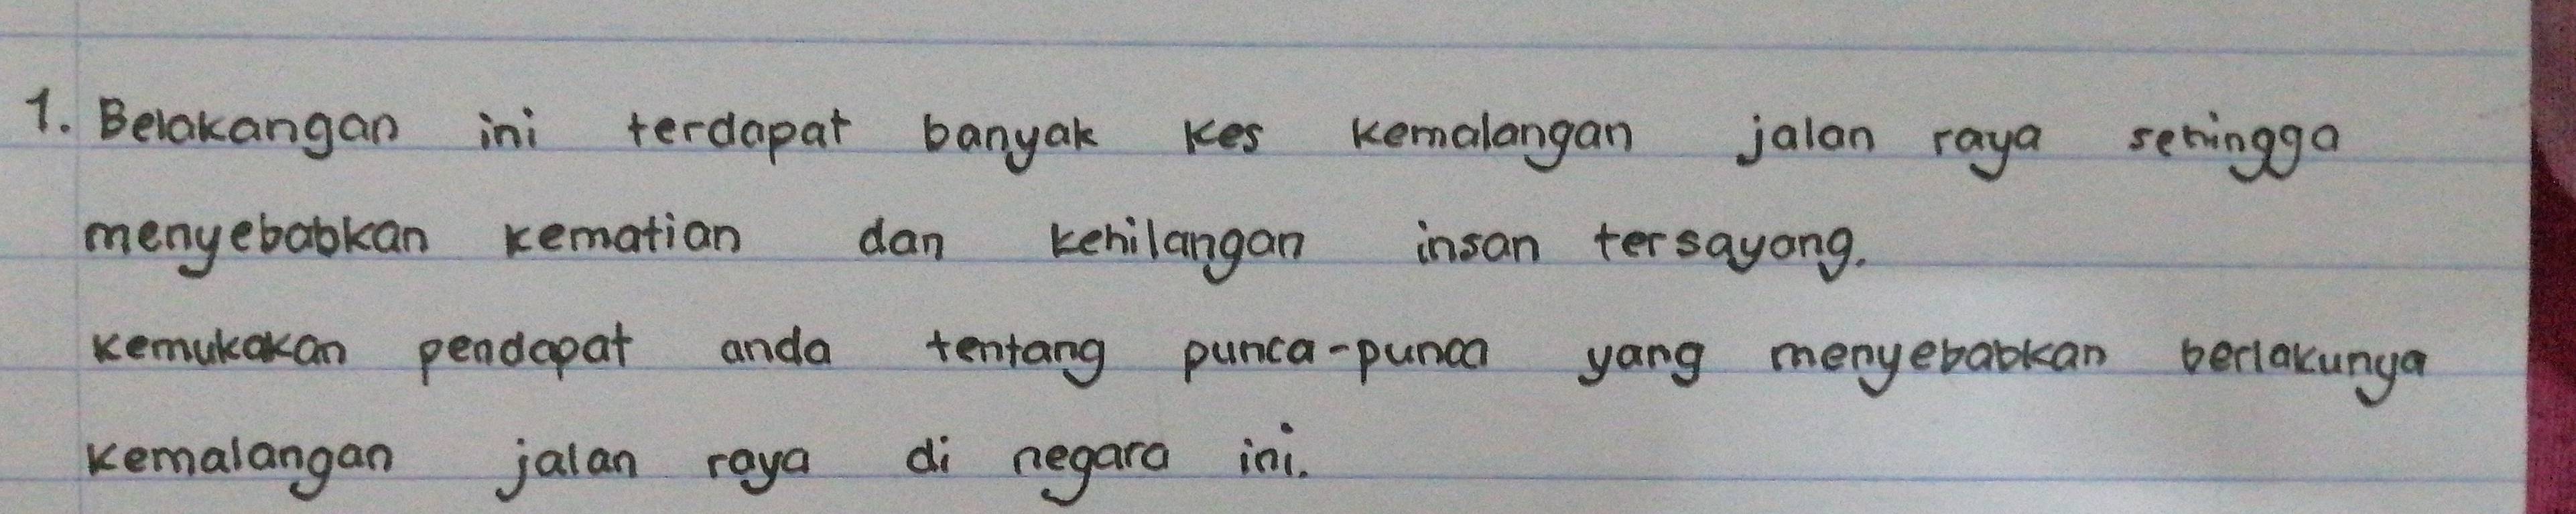 1. Belakangan ini terdapat banyak kes kemalangan jalan raya sehingga
menyebabkan kematian dan kehilangan insan tersayang.
Kemukakan pendapat anda tentang punca-punca yang menyebabkan berlakunya
kemalangan jalan raya di negara ini.